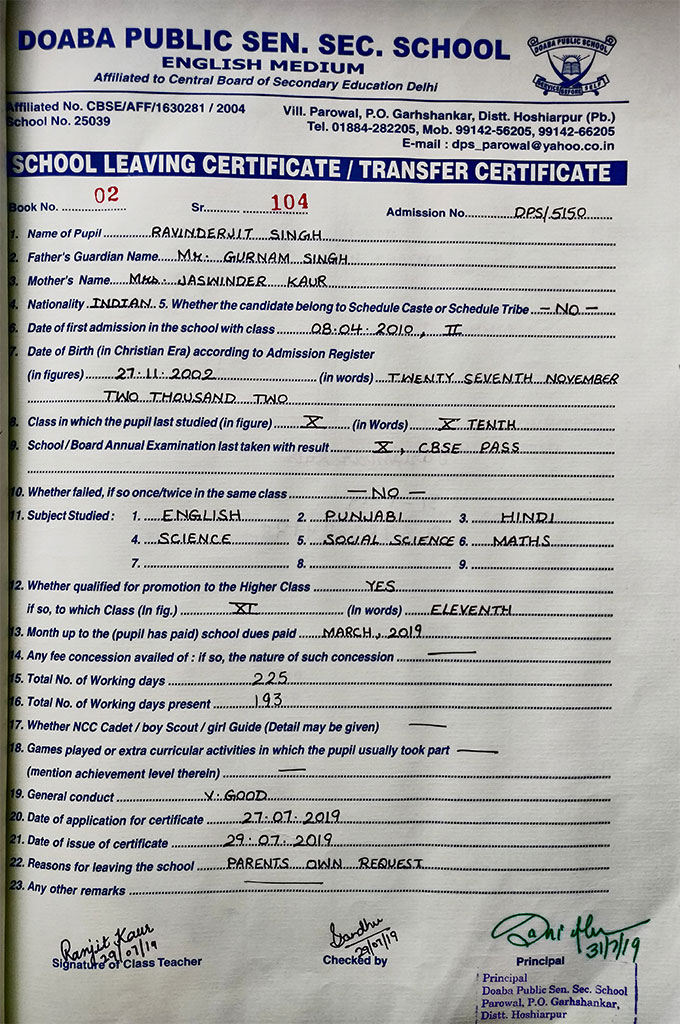 DOABA PUBLIC SEN. SEC. SCHOOL
ENGLISH MEDIUM
Affiliated to Central Board of Secondary Education Delhi
DOABA PUBLIC SCHOOL
SERVICE BEFORE SELF
Affiliated No. CBSE/AFF/1630281 / 2004
School No. 25039
Vill. Parowal, P.O. Garhshankar, Distt. Hoshiarpur (Pb.)
Tel. 01884-282205, Mob. 99142-56205, 99142-66205
E-mail : dps_parowal@yahoo.co.in
SCHOOL LEAVING CERTIFICATE / TRANSFER CERTIFICATE
Book No. 02 Sr. 104 Admission No. DPS/5150
1. Name of Pupil RAVINDERJIT SINGH
2. Father's Guardian Name Mr. GURNAM SINGH
3. Mother's Name Mrs. JASWINDER KAUR
4. Nationality INDIAN 5. Whether the candidate belong to Schedule Caste or Schedule Tribe – NO –
6. Date of first admission in the school with class 08.04.2010, II
7. Date of Birth (in Christian Era) according to Admission Register
(in figures) 27.11.2002 (in words) TWENTY SEVENTH NOVEMBER
TWO THOUSAND TWO
8. Class in which the pupil last studied (in figure) X (in Words) X TENTH
9. School/Board Annual Examination last taken with result X, CBSE PASS
10. Whether failed, if so once/twice in the same class – NO –
11. Subject Studied : 1. ENGLISH 2. PUNJABI 3. HINDI
4. SCIENCE 5. SOCIAL SCIENCE 6. MATHS
7. 8. 9.
12. Whether qualified for promotion to the Higher Class YES
if so, to which Class (In fig.) XI (In words) ELEVENTH
13. Month up to the (pupil has paid) school dues paid MARCH, 2019
14. Any fee concession availed of : if so, the nature of such concession —
15. Total No. of Working days 225
16. Total No. of Working days present 193
17. Whether NCC Cadet / boy Scout / girl Guide (Detail may be given) —
18. Games played or extra curricular activities in which the pupil usually took part —
(mention achievement level therein) —
19. General conduct V. GOOD
20. Date of application for certificate 27.07.2019
21. Date of issue of certificate 29.07.2019
22. Reasons for leaving the school PARENTS OWN REQUEST
23. Any other remarks —
Ranjit Kaur
29/07/19
Signature of Class Teacher
Sandhu
29/07/19
Checked by
31/7/19
Principal
Principal
Doaba Public Sen. Sec. School
Parowal, P.O. Garhshankar,
Distt. Hoshiarpur